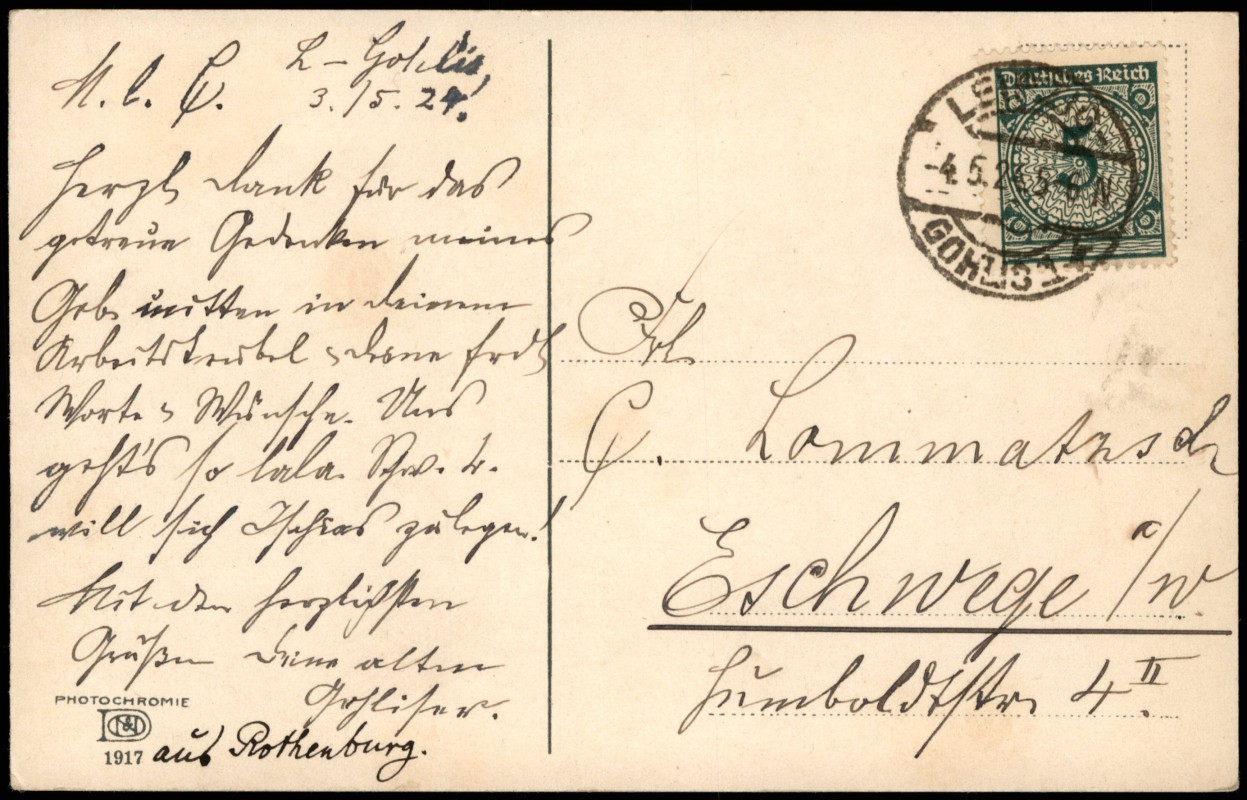 L-Gohlis,
M. l. C. 3./5.24.
Herzl. Dank für das
getreue Gedenken meines
Geb. mitten in deinem
Arbeitstrubel u. deine frdl.
Worte u. Wünsche. Uns
geht's so lala. Schw. L.
will sich Ischias zulegen!
Mit den herzlichsten
Grüßen deine alten
Gohliser.
PHOTOCHROMIE
1917
aus Rothenburg.
Deutsches Reich
5
LEIPZIG
-4.5.24.5-6 N
GOHLIS 1
Frl.
C. Lommatzsch
Eschwege a/W
Humboldtstr. 4 II.